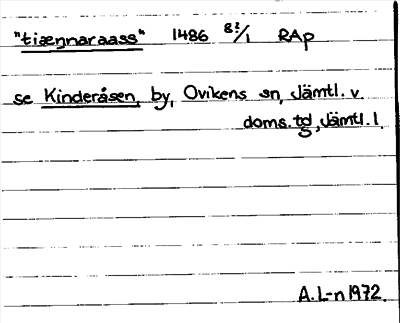 "tiænnaraass" 1486 8 2/1 RAp
se Kinderåsen, by, Ovikens sn, Jämtl. v.
doms. tg, Jämtl. l.
A. L-n 1972.